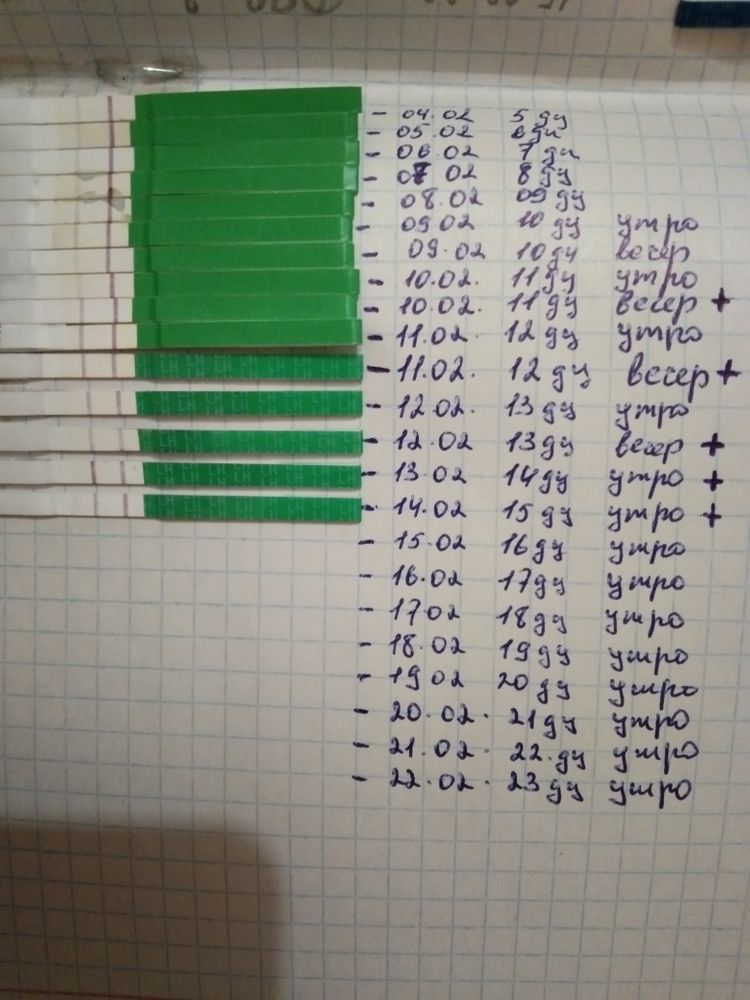 - 04.02 5 дц
- 05.02 6 дц
- 06.02 7 дц
- 07 02 8 дц
- 08.02 09 дц
- 09 02 10 дц утро
- 09.02 10 дц вечер
- 10.02. 11 дц утро
- 10.02. 11 дц вечер +
- 11.02. 12 дц утро
- 11.02. 12 дц вечер +
- 12 02. 13 дц утро
- 12.02 13 дц вечер +
- 13 02 14 дц утро +
- 14.02 15 дц утро +
- 15.02 16 дц утро
- 16.02 17 дц утро
- 17 02 18 дц утро
- 18.02 19 дц утро
- 19 02 20 дц утро
- 20.02. 21 дц утро
- 21.02. 22. дц утро
- 22.02. 23 дц утро